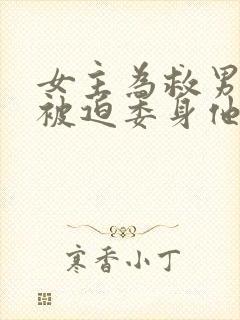 女主為救男
被迫委身他
寒香小丁